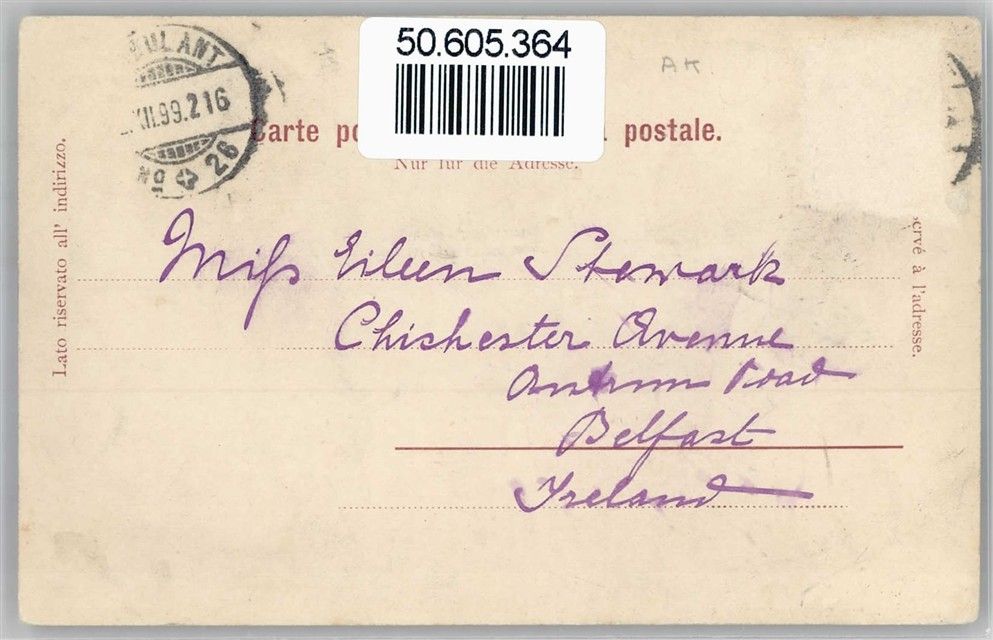 50.605.364
BULANT
XII.99.216
No 26
AK
Carte po postale.
Nur für die Adresse.
Lato riservato all' indirizzo.
ervé à l'adresse.
Miss Eileen Stewark
Chichester Avenue
Antrim Road
Belfast
Ireland